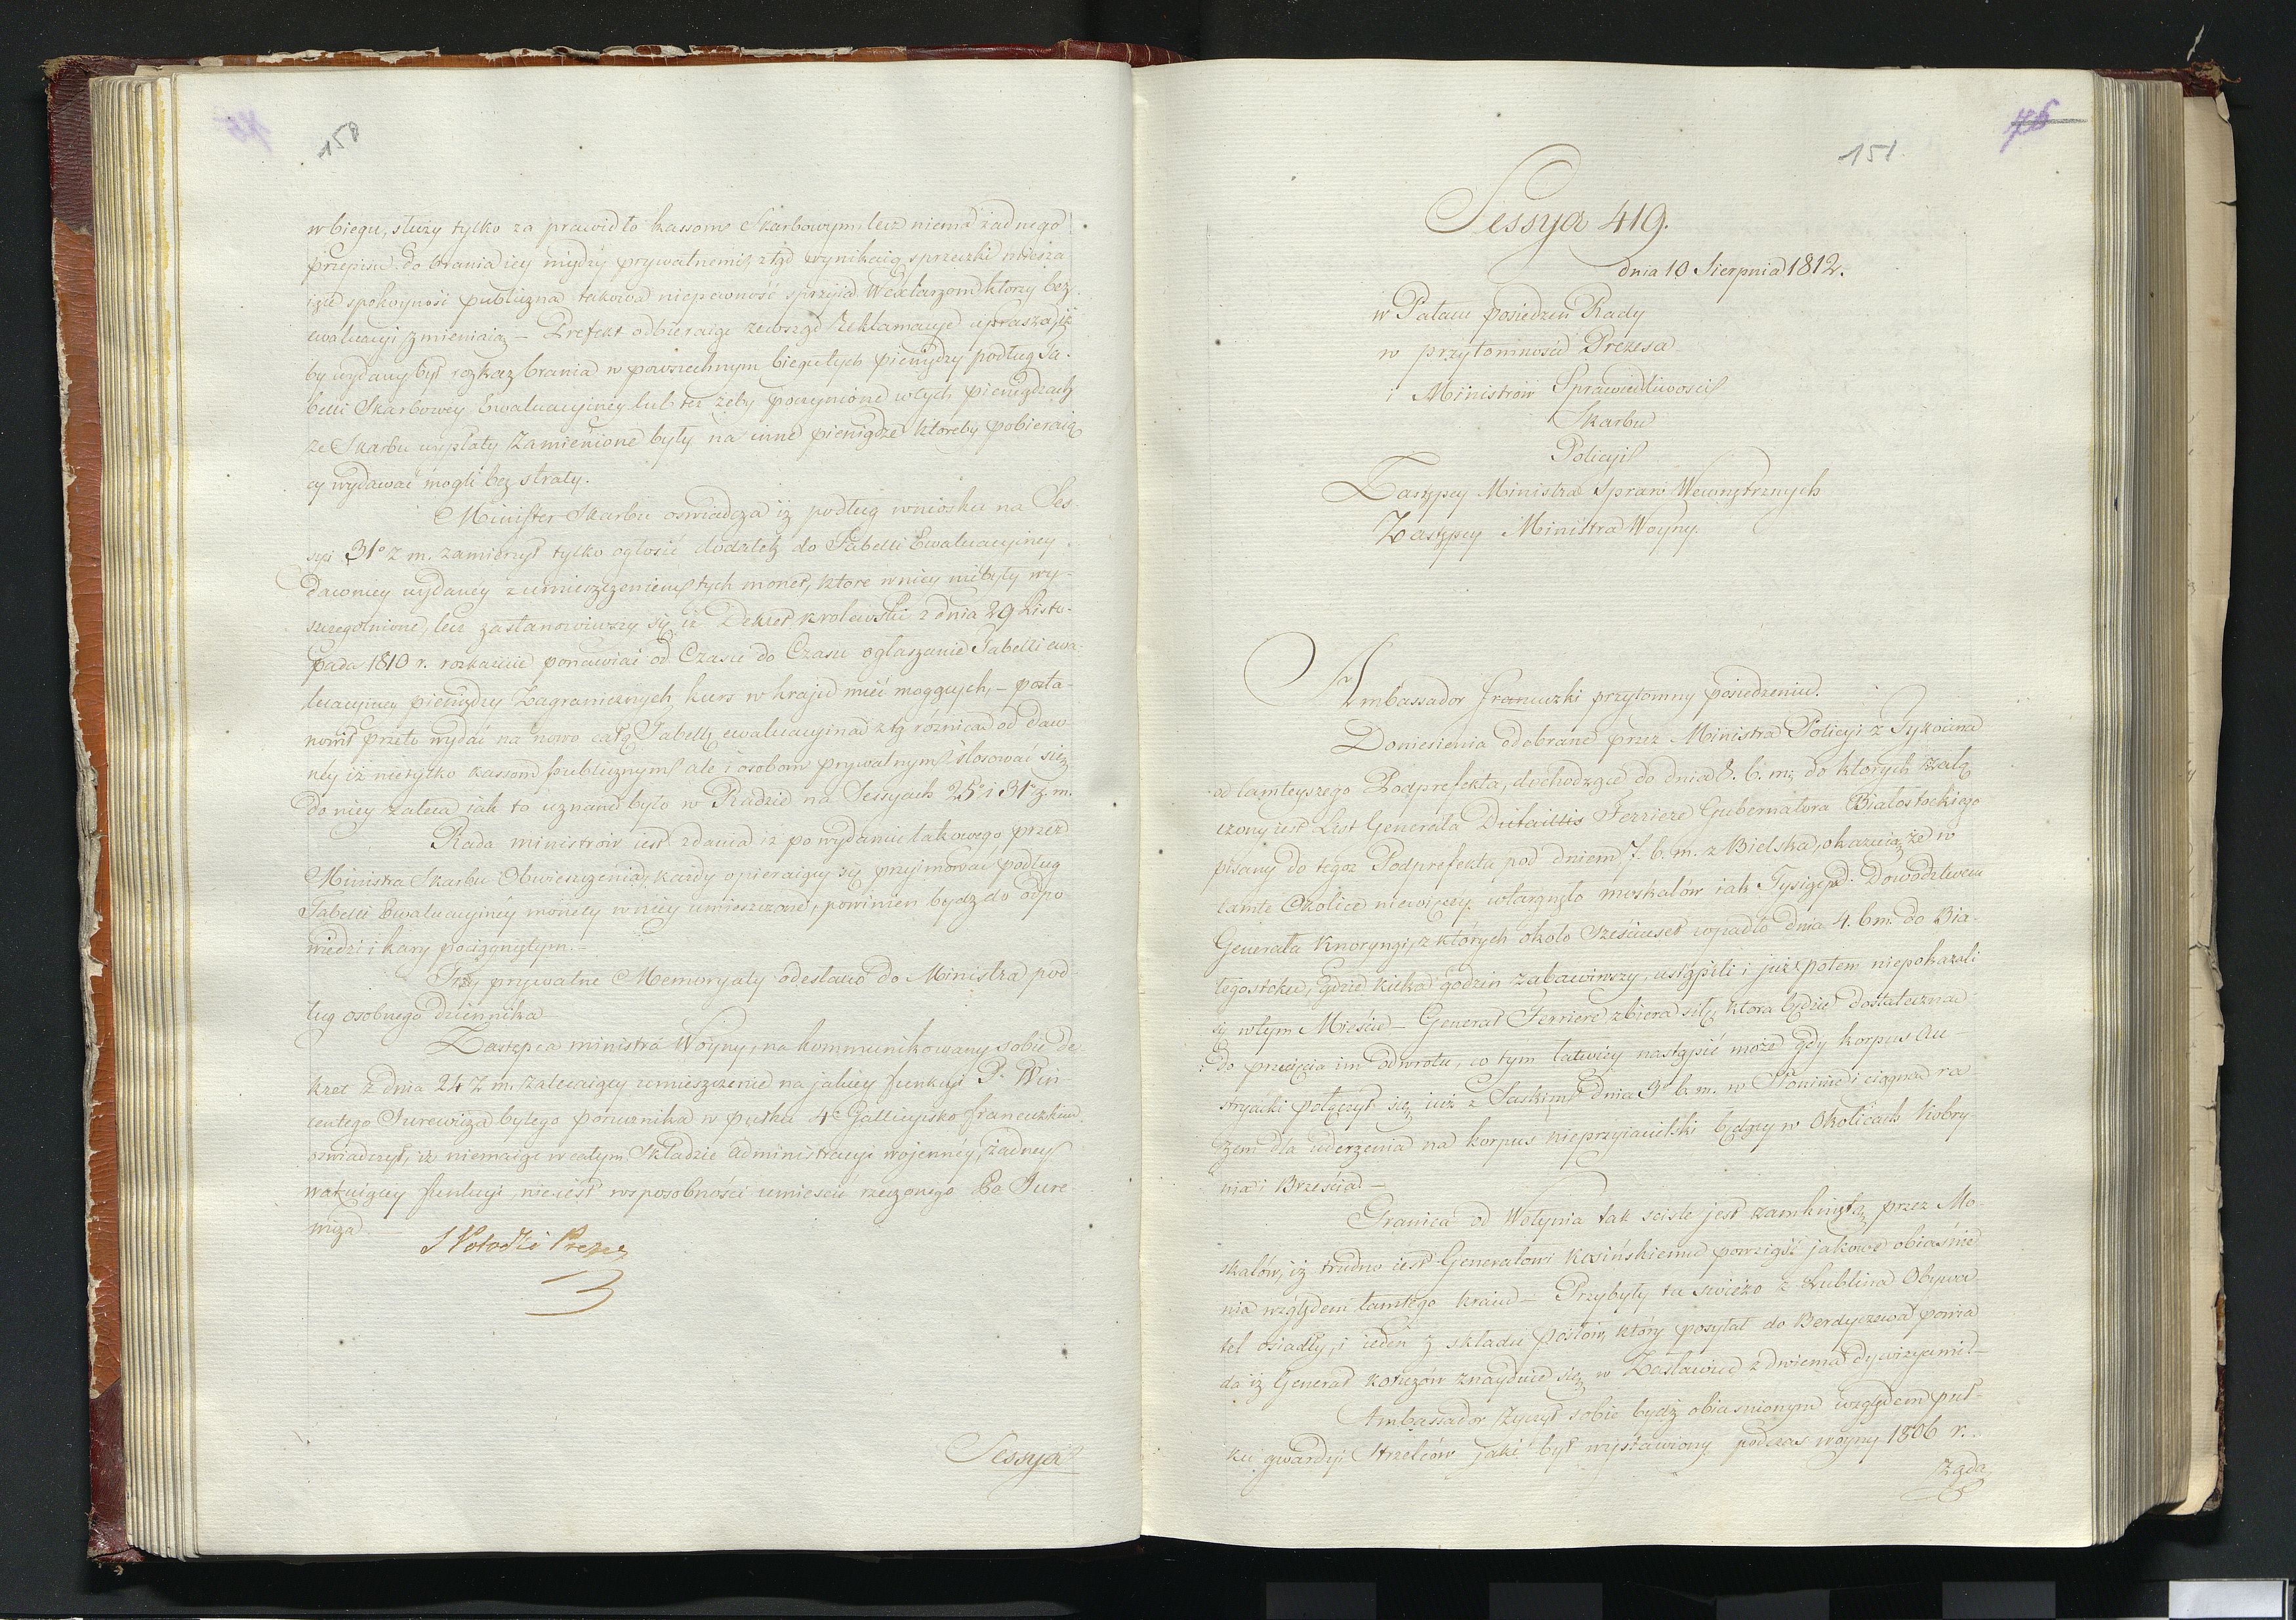 150
w biegu, służy tylko za prawidło kassom Skarbowym lecz niema żadnego
przepisu do brania iey między prywatnemi, ztąd wynikaią sprzeczki miesza
się spokoyność publiczna takowa niepewność sprzyia Wexlarzom którzy bez
ewaluacyi zmieniaią – Prefekt odbieraiąc zewsząd Reklamacye uprasza, iż
by wydany był rozkaz brania w powszechnym biegu tych pieniędzy podług Ta-
belli Skarbowey Ewaluacyiney lub też żeby poczynione w tych pieniądzach
ze Skarbu wypłaty zamienione były na inne pieniądze któreby pobieraią
cy wydawać mogli bez straty.
Minister Skarbu oswiadcza iż podług wniosku na Ses-
syi 31° z. m. zamierzył tylko ogłosić dodatek do Tabelli Ewaluacyiney
dawniey wydaney z umieszczeniem tych monet, które w niey niebyły wy-
szczegolnione, lecz zastanowiwszy się iż Dekret krolewski z dnia 29 Listo-
pada 1810 r. rozkazuie ponawiać od Czasu do Czasu ogłaszanie Tabelli ewa-
luacyiney pieniędzy Zagranicznych kurs w kraju mieć mogących, – posta-
nowił przeto wydać na nowo całą Tabellę ewaluacyiną z tą roznicą od daw-
ney iż nietylko kassom publicznym ale i osobom prywatnym stosować się
do niey zaleca iak to uznane było w Radzie na Sessyach 25° i 31° z. m.
Rada ministrow iest zdania iż po wydaniu takowego przez
Ministra Skarbu Obwieszczenia, każdy opieraiący się przyimować podług
Tabelli Ewaluacyiney monety w niey umieszczone, powinien bydź do odpo
wiedzi i kary pociągniętym. –
Trzy prywatne Memoryały odesłano do Ministra pod-
ług osobnego dziennika –
Zastępca ministra Woyny, na kommunikowany sobie de
kret z dnia 24 z. m. zalecaiący umieszczenie na jakiey funkcyi P. Win
centego Jurewicza byłego porucznika w pułku 4. Gallicyisko francuzkim
oswiadczył, iż niemaiąc w całym Składzie administracyi wojenney, żadney
wakuiącey funkcyi nie iest w sposobności umieścić rzeczonego Pa Jure-
wicza
Sessya
151
Sessya 419.
dnia 10 Sierpnia 1812.
w Pałacu posiedzeń Rady
w przytomności Prezesa
i Ministrów Sprawiedliwości
Skarbu
Policyi
Zastępcy Ministra Spraw Wewnętrznych
Zastępcy Ministra Woyny.
Ambassador francuzki przytomny posiedzeniu.
Doniesienia odebrane przez Ministra Policyi z Tykocina
od tamteyszego Podprefekta, dochodzące do dnia 8. b. m; do których załą
czony iest List Generała Dutaillis Ferriere Gubernatora Białostockiego
pisany do tegoż Podprefekta pod dniem 7. b. m. z Bielska, okazuią że w
tamte Okolice niewięcey wtargnęło moskalów iak Tysiąc pod Dowodztwem
Generała Knoryngi, z których około Sześciuset wpadło dnia 4. b m. do Bia-
łegostoku, gdzie kilka godzin zabawiwszy, ustąpili i już potem niepokazali
się w tym Mieście – Generał Ferriere zbiera siłę, ktora będzie dostateczna
do przecięcia im odwrotu, co tym łatwiey nastąpić może gdy korpus Au
stryacki połączył się iuż z Saskim dnia 3° b. m. w Słonimie i ciągną ra
zem dla uderzenia na korpus nieprzyiacielski będący w Okolicach Kobry-
nia i Brześcia. –
Granica od Wołynia tak scisle jest zamknięta przez Mo
skalów, iż trudno iest Generałowi Kosińskiemu powziąść jakowe obiaśnie
nia względem tamtego kraiu – Przybyły tu swieżo z Lublina Obywa
tel osiadły, i ieden z składu posłów, który posyłał do Berdyczewa powia
da iż Generał Kotuzów znayduie się w Zasławiu z dwiema dywizyami –
Ambassador życzył sobie bydź obiasnionym względem puł-
ku gwardyi Strzelców jaki był wystawiony podczas woyny 1806 r.
Zgda